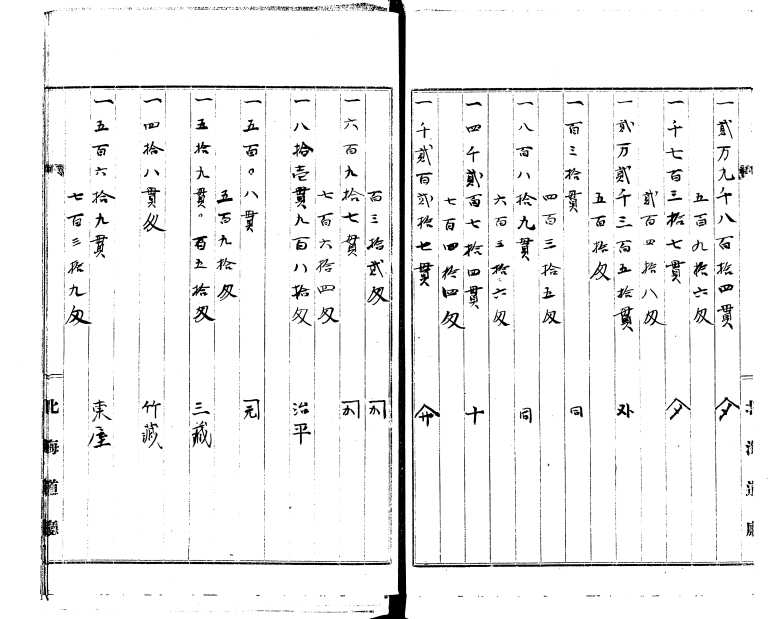 一貳万九千八百拾四貫
五百九拾六匁
一千七百三拾七貫
貳百四拾八匁
一貳万貳千三百五拾貫
五百拾匁
一百三拾貫 同
四百三拾五匁
一八百八拾九貫 同
六百三拾六匁
一四千貳百七拾四貫 十
七百四拾四匁
一千貳百貳拾七貫
百三拾貳匁
一六百九拾七貫
七百六拾四匁
一八拾壱貫九百八拾匁 治平
一五百〇八貫
五百九拾匁
一五拾九貫〇百五拾匁 三蔵
一四拾八貫匁 竹蔵
一五百六拾九貫 東屋
七百三拾九匁
北海道廳